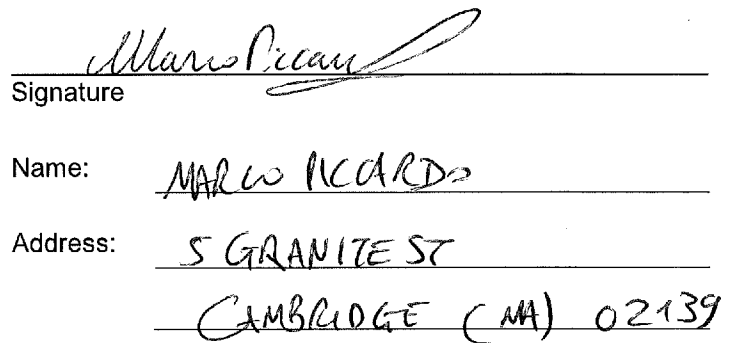 Marco Piccardo
Signature
Name: MARCO PICCARDO
Address: 5 GRANITE ST
CAMBRIDGE (MA) 02139